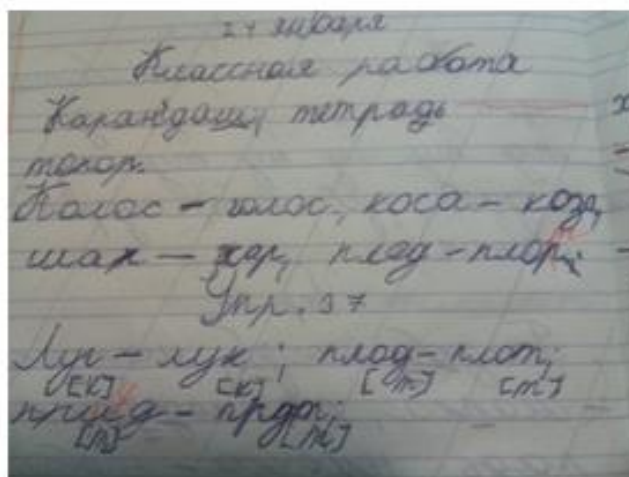 24 января
Классная работа
Карандаш, тетрадь
топор.
Колос – голос, коса – коза,
шар – жар, плод – плот;
Упр. 37
Луг – лук ; плод – плот;
[к] [к] [т] [т]
[т] [т]